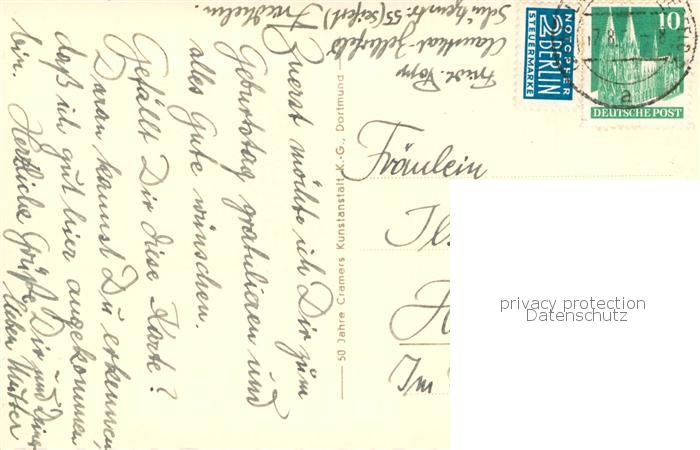 Friedr. Popp
Clausthal-Zellerfeld
Schützenstr. 55 (Seifert)
Zuerst möchte ich Dir zum
Geburtstag gratulieren und
alles Gute wünschen.
Gefällt Dir diese Karte?
Daran kannst Du erkennen,
daß ich gut hier angekommen
bin. Herzliche Grüße Dir und
lieben Mutter
Friedhelm.
50 Jahre Cramers Kunstanstalt K.-G., Dortmund
NOTOPFER
2 BERLIN
STEUERMARKE
10
DEUTSCHE POST
17.8.
a
Fräulein
Im
privacy protection
Datenschutz